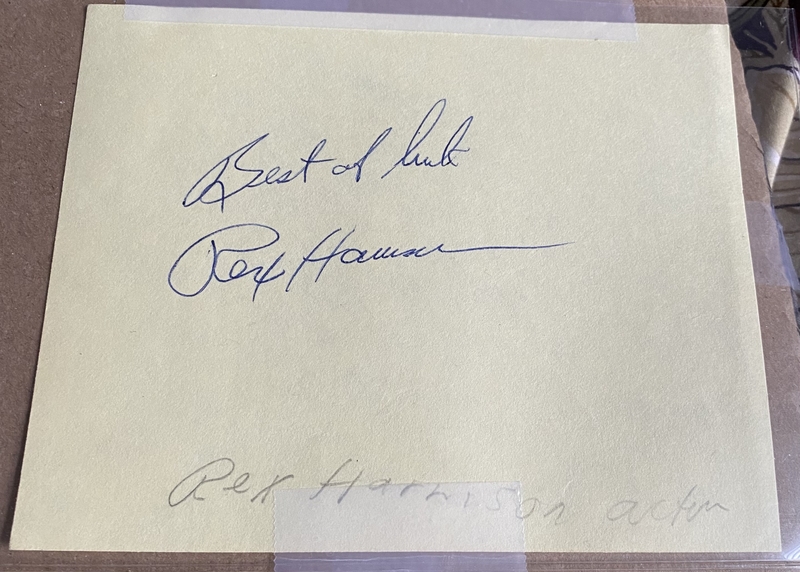 Best of luck
Rex Harrison
Rex Harrison actor